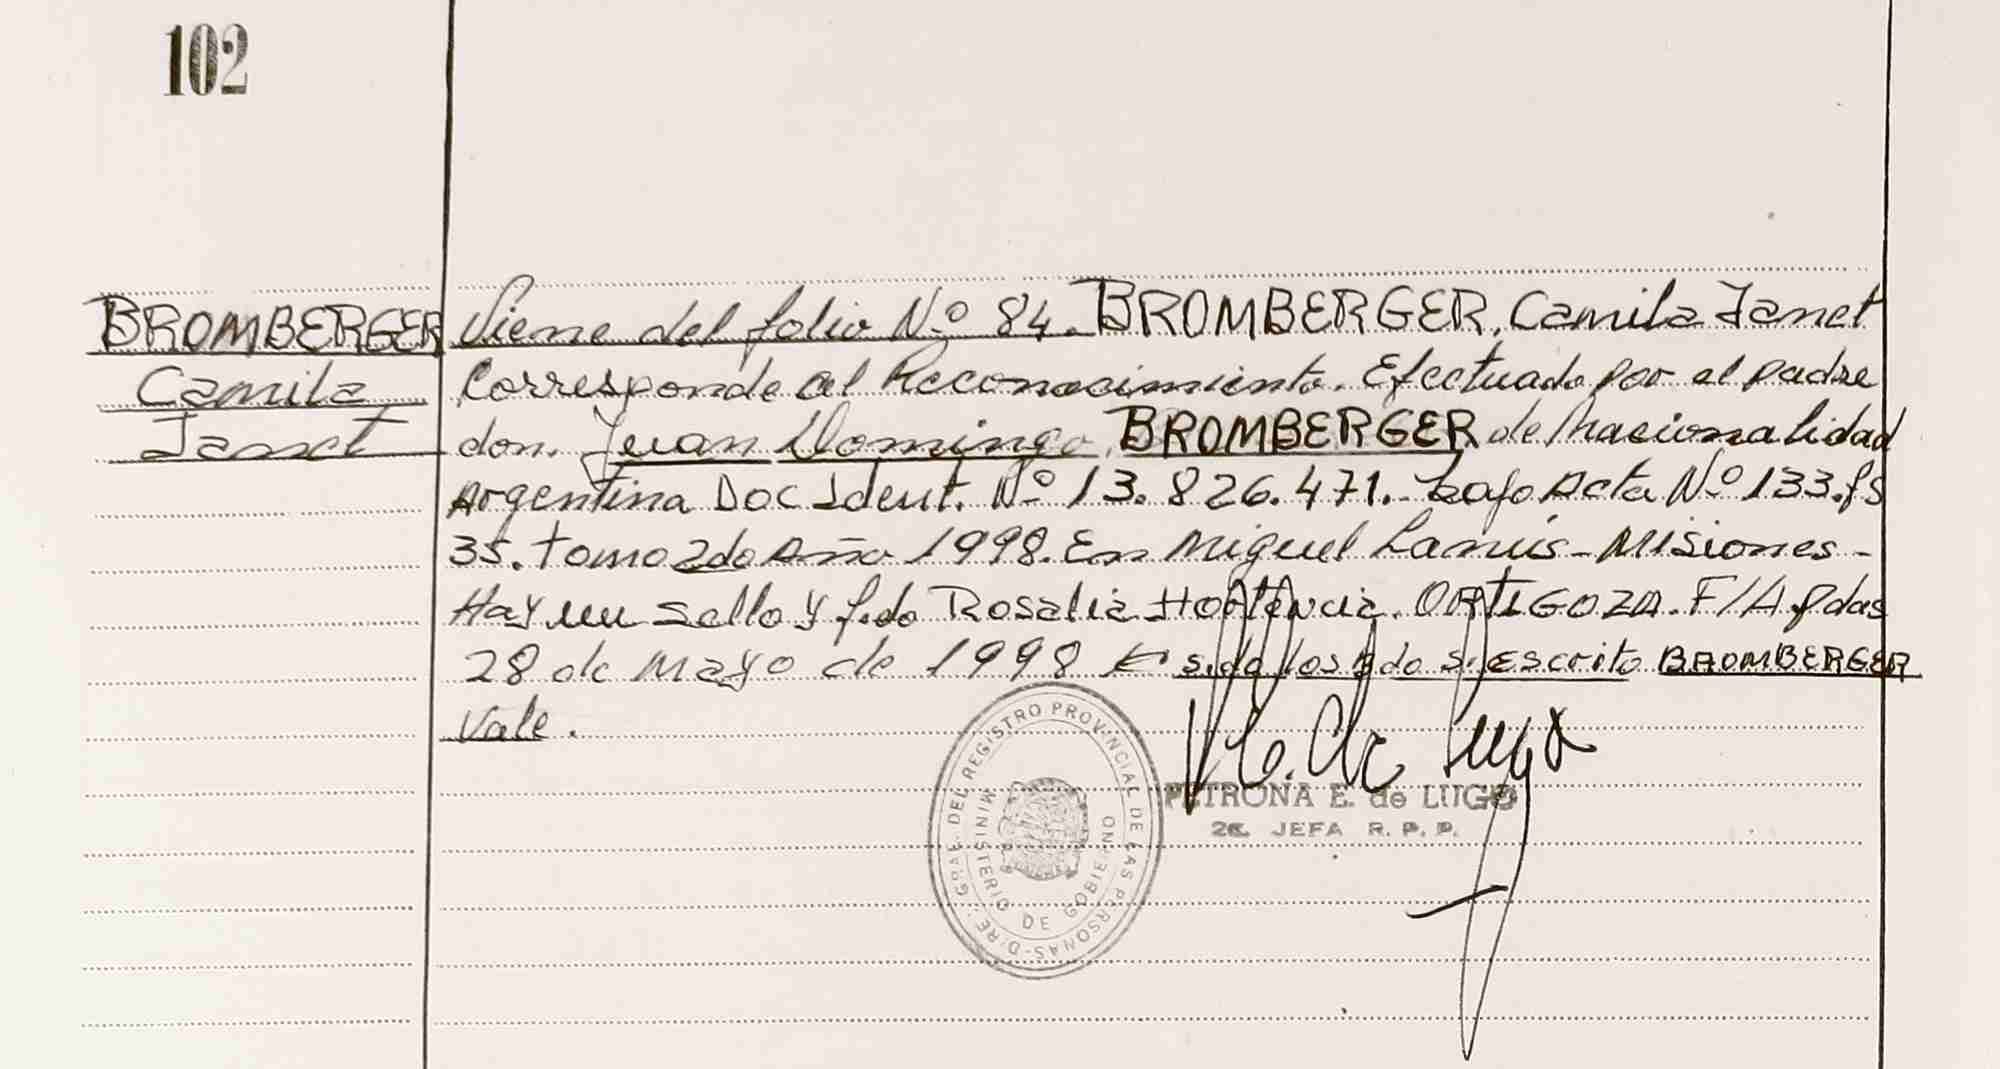 102
BROMBERGER
Camila
Janet
Viene del folio N.º 84. BROMBERGER, Camila Janet
Corresponde al Reconocimiento. Efectuado por el padre
don. Juan Domingo BROMBERGER de Nacionalidad
Argentina Doc Ident. Nº 13.826.471.- bajo Acta Nº 133.fs
35. tomo 2do Año 1998. En Miguel Lanús - Misiones -
Hay un sello y f.do Rosalia Hortencia. ORTIGOZA. F/A.pdas
28 de mayo de 1998 s. escrito BROMBERGER
Vale.
DIRE. GRAL. DEL REGISTRO PROVINCIAL DE LAS PERSONAS-
MINISTERIO DE GOBIERNO
PETRONA E. de LUGO
JEFA R. P. P.